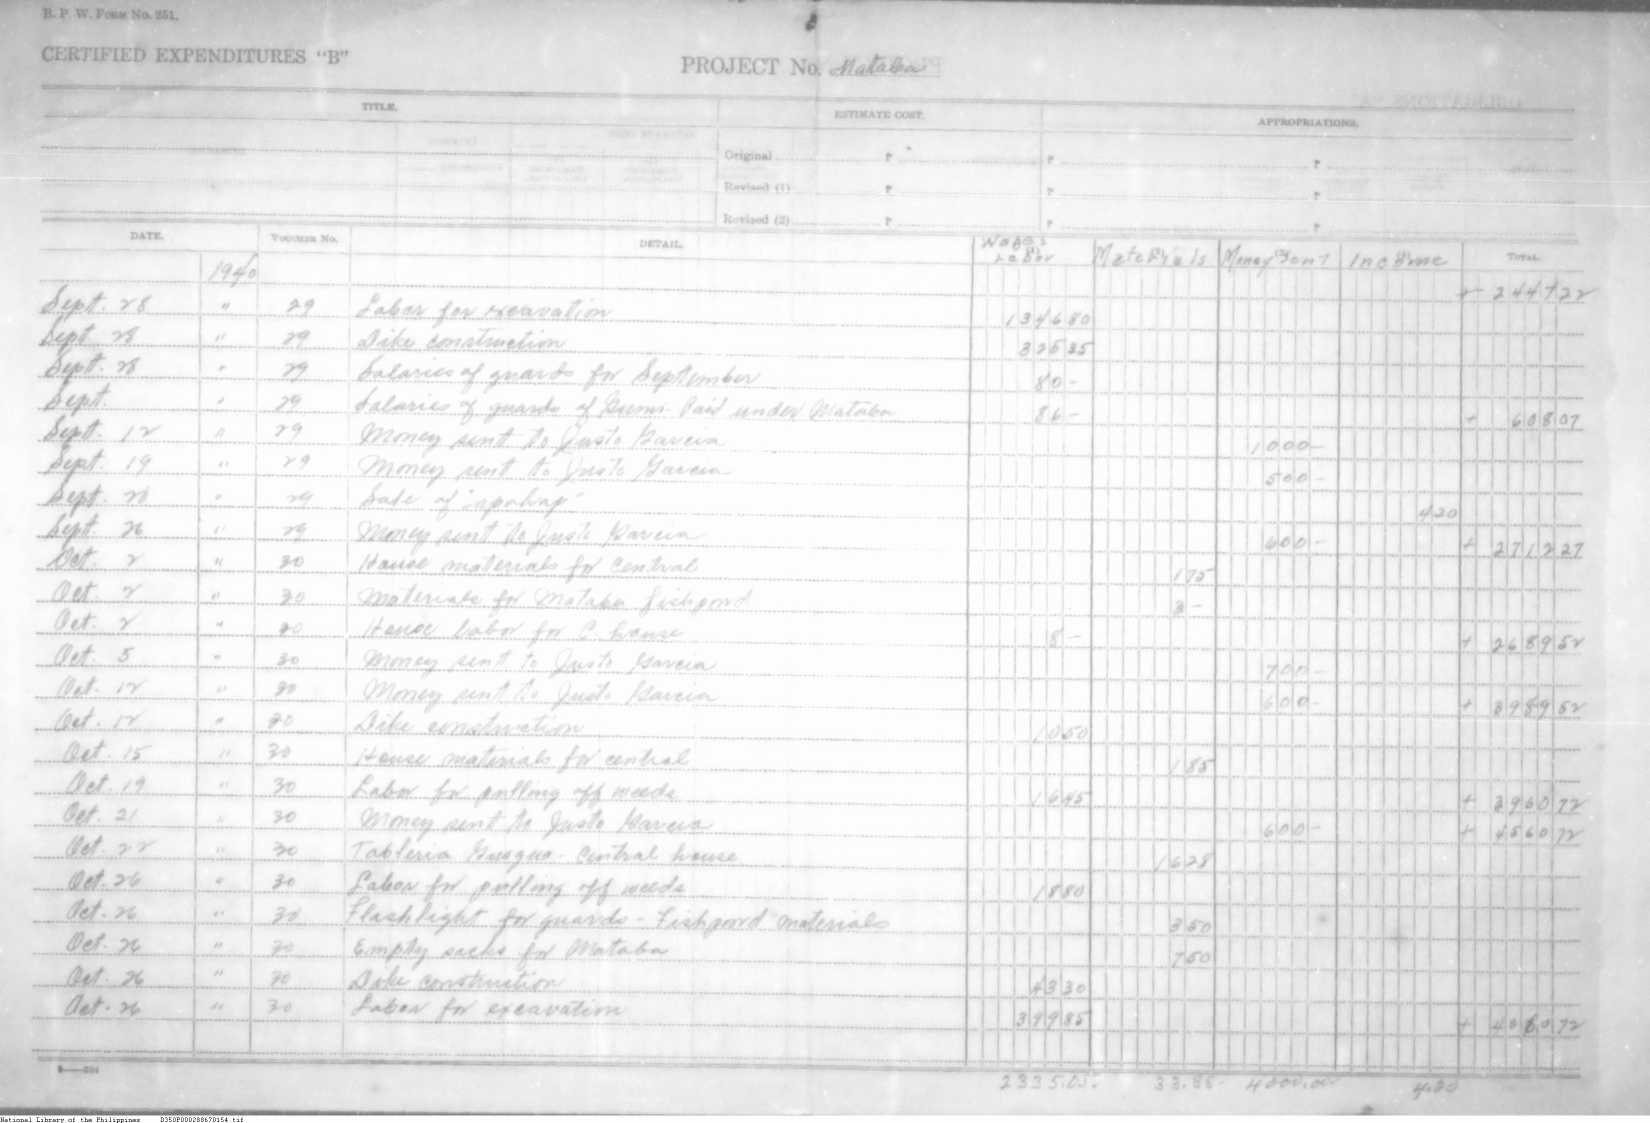 B. P. W. Form No. 251.
CERTIFIED EXPENDITURES "B"
PROJECT No. Mataba
TITLE. ESTIMATE COST. APPROPRIATIONS.
Original P P P
Revised (1) P P P
Revised (2) P P P
DATE. VOUCHER No. DETAIL. Wages Labor Materials Money Sent Income TOTAL
1940 + 2447 22
Sept. 28 " 29 Labor for excavation 1346 80
Sept 28 " 29 Dike construction 325 35
Sept. 28 " 29 Salaries of guards for September 80 -
Sept. " 29 Salaries of guards of Paid under Mataba 86 - + 608 07
Sept. 12 " 29 Money sent to Justo Garcia 1000 -
Sept. 19 " 29 Money sent to Justo Garcia 500 -
Sept. 20 " 29 Sale of 4 20
Sept 26 " 29 Money sent to Justo Garcia 600 - + 2712 27
Oct. 2 " 30 House materials for central 1 75
Oct. 2 " 30 Materials for Mataba fishpond 3 -
Oct. 2 " 30 House labor for C. house 8 - + 2689 52
Oct. 5 " 30 Money sent to Justo Garcia 700 -
Oct. 12 " 30 Money sent to Justo Garcia 600 - + 3989 52
Oct. 12 " 30 Dike construction 10 50
Oct. 15 " 30 House materials for central 1 85
Oct. 19 " 30 Labor for pulling off weeds 16 45 + 3960 72
Oct. 21 " 30 Money sent to Justo Garcia 600 - + 4560 72
Oct. 22 " 30 Tableria Guagua - Central house 16 25
Oct. 26 " 30 Labor for pulling off weeds 18 80
Oct. 26 " 30 Flashlight for guards - Fishpond materials 3 50
Oct. 26 " 30 Empty sacks for Mataba 7 50
Oct. 26 " 30 Dike construction 43 30
Oct. 26 " 30 Labor for excavation 399 85 + 4080 72
2335.05 33.85 4000.00 4.20
National Library of the Philippines D350P000288670154.tif